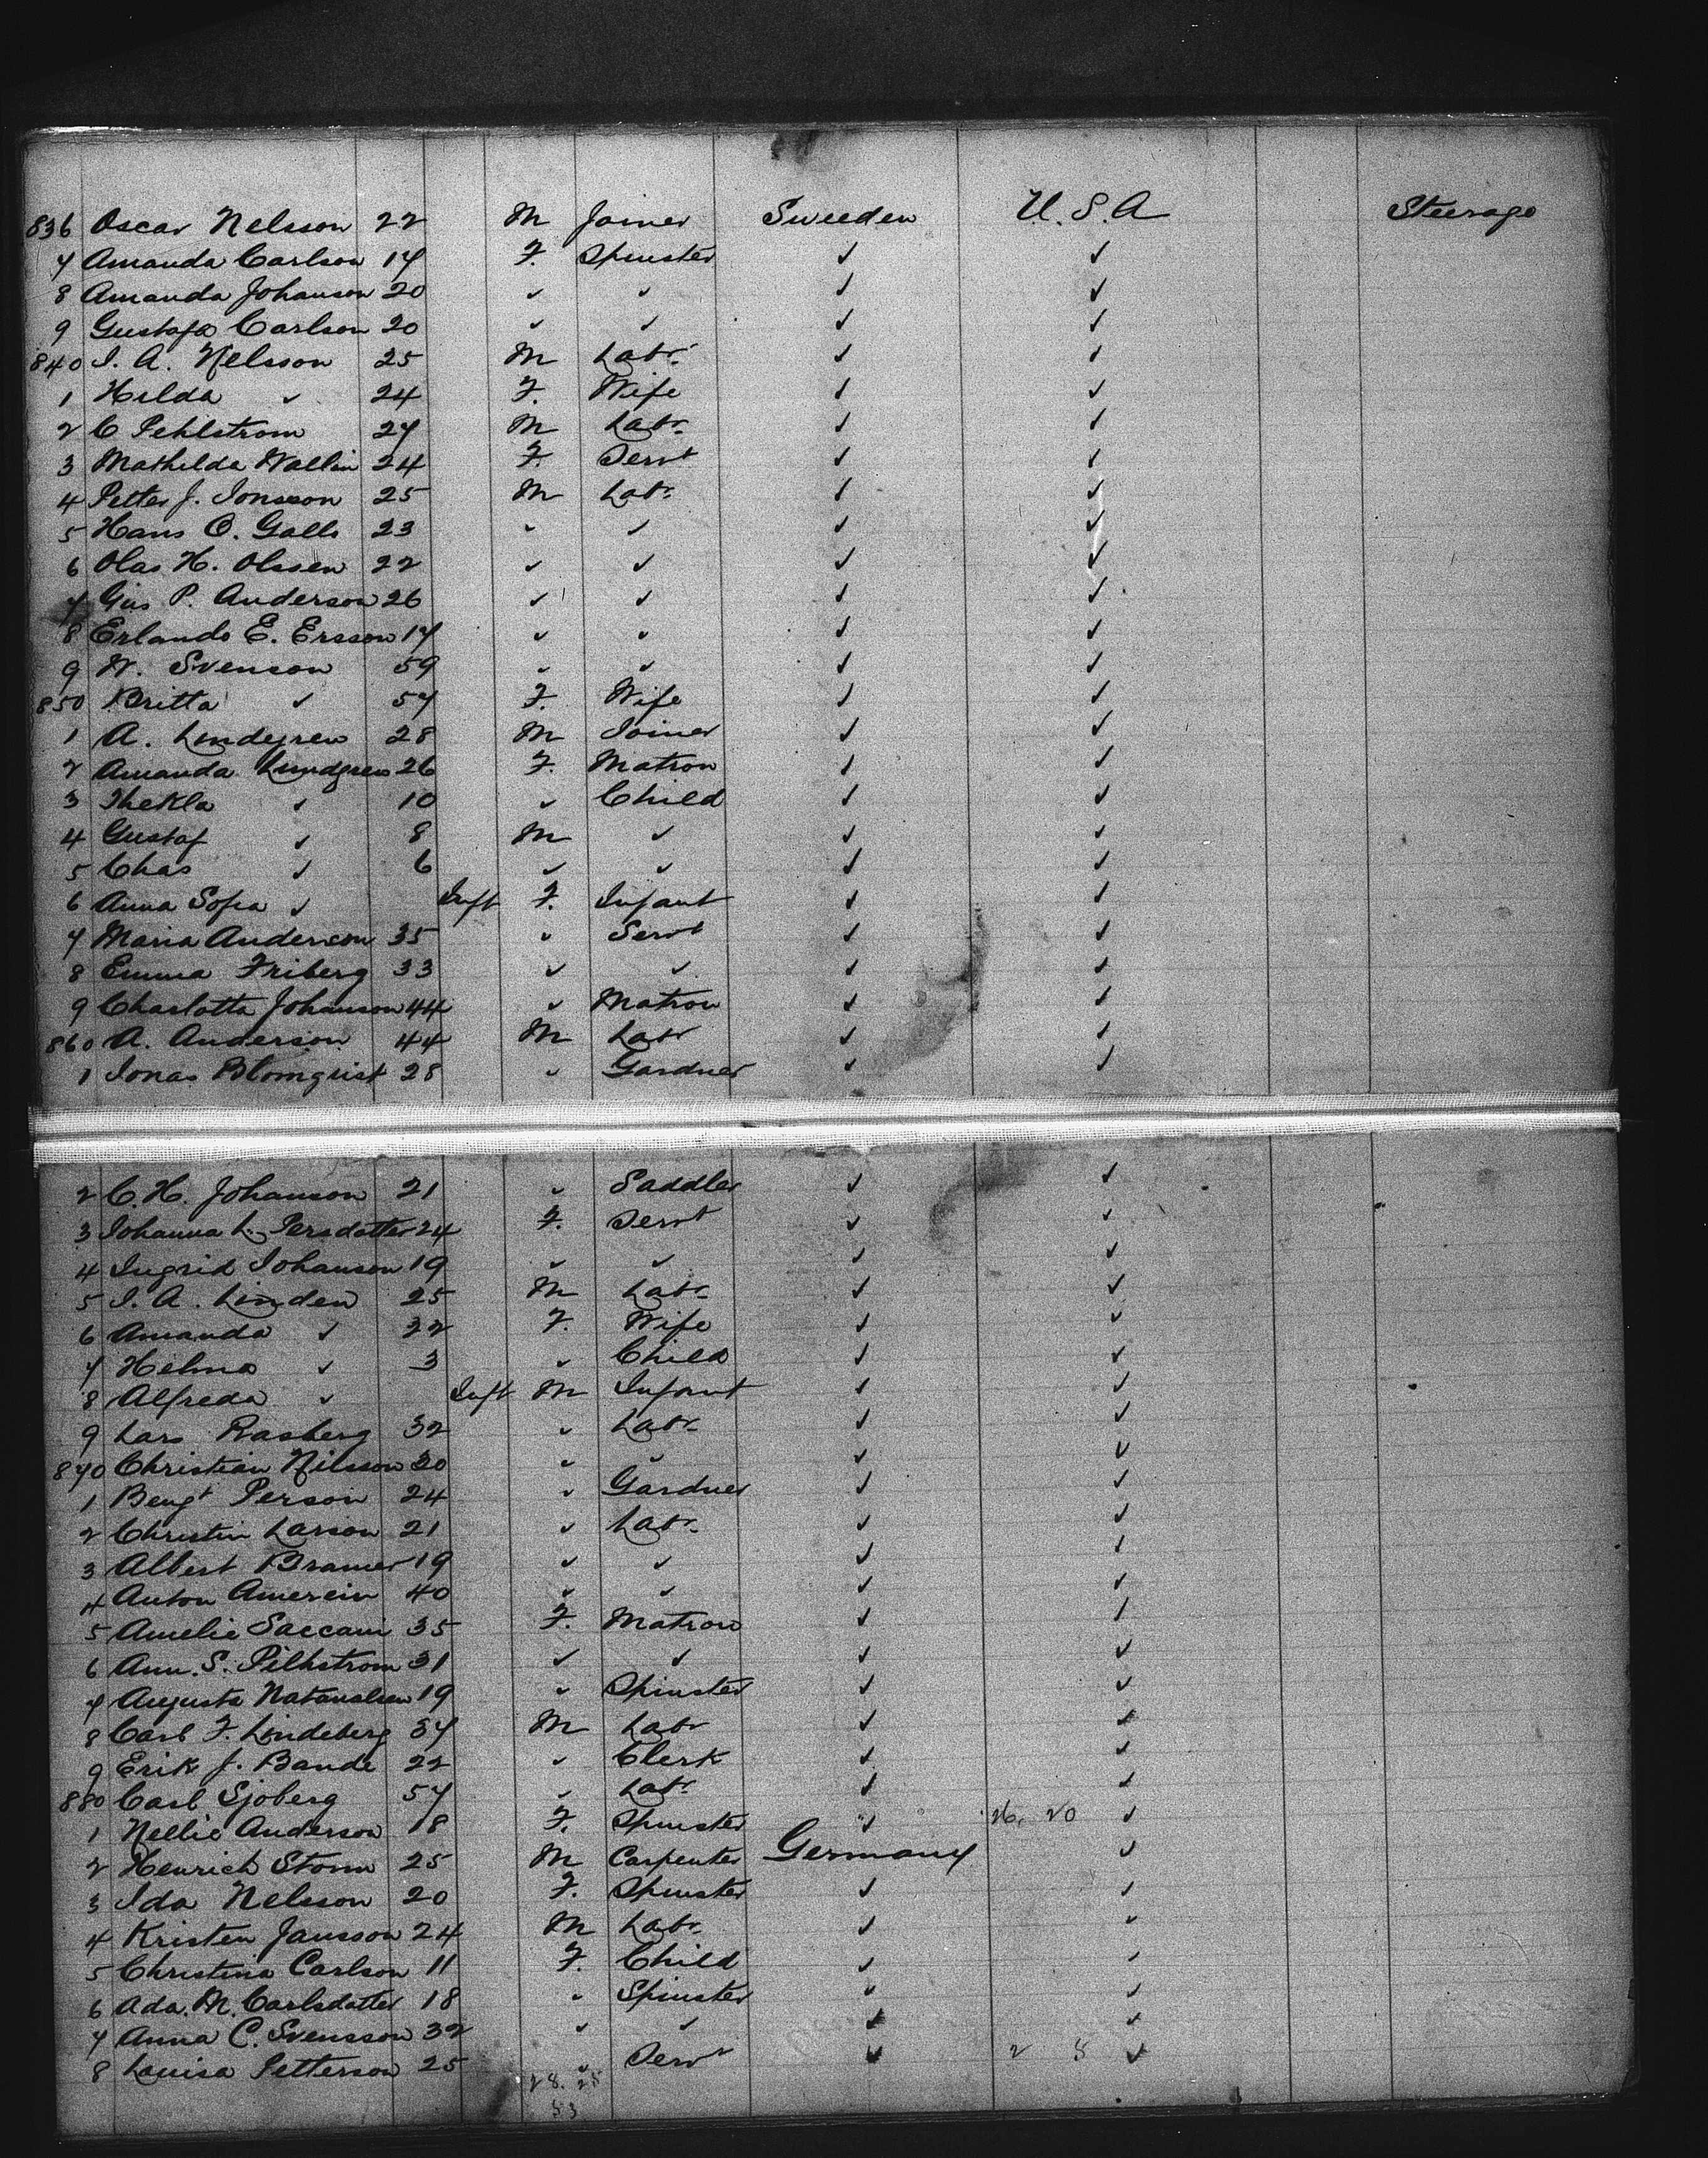 836 Oscar Nelsson 22 M Joiner Sweeden U.S.A Steerage
7 Amanda Carlson 17 F. Spinster ✓ ✓
8 Amanda Johanson 20 ✓ ✓ ✓ ✓
9 Gustafa Carlson 20 ✓ ✓ ✓ ✓
840 I. A. Nelsson 25 M Labr. ✓ ✓
1 Hilda ✓ 24 F. Wife ✓ ✓
2 C Pehlstrom 27 M Labr. ✓ ✓
3 Mathilda Wallin 24 F. Servt ✓ ✓
4 Petter J. Jonsson 25 M Labr. ✓ ✓
5 Hans O. Galls 23 ✓ ✓ ✓ ✓
6 Olas H. Olssen 22 ✓ ✓ ✓ ✓
7 Gus P. Anderson 26 ✓ ✓ ✓ ✓
8 Erlando E. Ersson 17 ✓ ✓ ✓ ✓
9 N. Svenson 59 ✓ ✓ ✓ ✓
850 Britta ✓ 57 F. Wife ✓ ✓
1 A. Lindgren 28 M Joiner ✓ ✓
2 Amanda Lundgren 26 F. Matron ✓ ✓
3 Thekla ✓ 10 ✓ Child ✓ ✓
4 Gustaf ✓ 8 M ✓ ✓ ✓
5 Chas ✓ 6 ✓ ✓ ✓ ✓
6 Anna Sofia ✓ Inft F. Infant ✓ ✓
7 Maria Anderson 35 ✓ Servt ✓ ✓
8 Emma Friberg 33 ✓ ✓ ✓ ✓
9 Charlotta Johanson 44 ✓ Matron ✓ ✓
860 A. Anderson 44 M Labr ✓ ✓
1 Jonas Blomquist 28 ✓ Gardner ✓ ✓
2 C. H. Johanson 21 ✓ Saddler ✓ ✓
3 Johanna L. Persdotter 24 F. Servt ✓ ✓
4 Ingrid Johanson 19 ✓ ✓ ✓ ✓
5 I. A. Linden 25 M Labr. ✓ ✓
6 Amanda ✓ 22 F. Wife ✓ ✓
7 Helma ✓ 3 ✓ Child ✓ ✓
8 Alfreda ✓ Inft M Infant ✓ ✓
9 Lars Rasberg 32 ✓ Labr. ✓ ✓
870 Christian Nilsson 20 ✓ ✓ ✓ ✓
1 Bengt Person 24 ✓ Gardner ✓ ✓
2 Christin Larson 21 ✓ Labr. ✓ ✓
3 Albert Bramer 19 ✓ ✓ ✓ ✓
4 Anton Amerein 40 ✓ ✓ ✓ ✓
5 Amelie Saccani 35 F. Matron ✓ ✓
6 Ann. S. Pilhstrom 31 ✓ ✓ ✓ ✓
7 Augusta Natanalsen 19 ✓ Spinster ✓ ✓
8 Carl F. Lindeberg 37 M Labr ✓ ✓
9 Erik J. Bande 22 ✓ Clerk ✓ ✓
880 Carl Sjoberg 57 ✓ Labr. ✓ ✓
1 Nellie Anderson 18 F. Spinster ✓ 26. 20 ✓
2 Henrich Storm 25 M Carpenter Germany ✓
3 Ida Nelsson 20 F. Spinster ✓ ✓
4 Kristen Jansson 24 M Labr. ✓ ✓
5 Christina Carlson 11 F. Child ✓ ✓
6 Ada. M. Carlsdotter 18 ✓ Spinster ✓ ✓
7 Anna C. Svensson 32 ✓ ✓ ✓ ✓
8 Louisa Petterson 25 ✓ Servt ✓ 2 8 ✓
28. 25
53